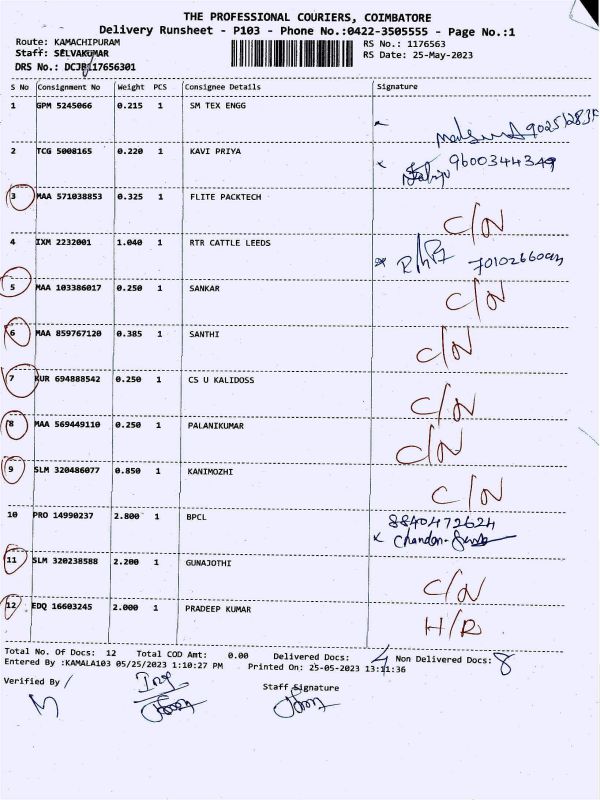 THE PROFESSIONAL COURIERS, COIMBATORE
Delivery Runsheet - P103 - Phone No.:0422-3505555 - Page No.:1
Route: KAMACHIPURAM RS No.: 1176563
Staff: SELVAKUMAR RS Date: 25-May-2023
DRS No.: DCJB117656301
S No Consignment No Weight PCS Consignee Details Signature
1 GPM 5245066 0.215 1 SM TEX ENGG
2 TCG 5008165 0.220 1 KAVI PRIYA 9600344349
3 MAA 571038853 0.325 1 FLITE PACKTECH C/N
4 IXM 2232001 1.040 1 RTR CATTLE LEEDS
5 MAA 103386017 0.250 1 SANKAR C/N
6 MAA 859767120 0.385 1 SANTHI C/N
7 KUR 694888542 0.250 1 CS U KALIDOSS C/N
8 MAA 569449110 0.250 1 PALANIKUMAR C/N
9 SLM 320486077 0.850 1 KANIMOZHI C/N
10 PRO 14990237 2.800 1 BPCL 8840472624
Chandan
11 SLM 320238588 2.200 1 GUNAJOTHI C/N
12 EDQ 16603245 2.000 1 PRADEEP KUMAR H/R
Total No. Of Docs: 12 Total COD Amt: 0.00 Delivered Docs: 4 Non Delivered Docs: 8
Entered By :KAMALA103 05/25/2023 1:10:27 PM Printed On: 25-05-2023 13:11:36
Verified By Staff Signature